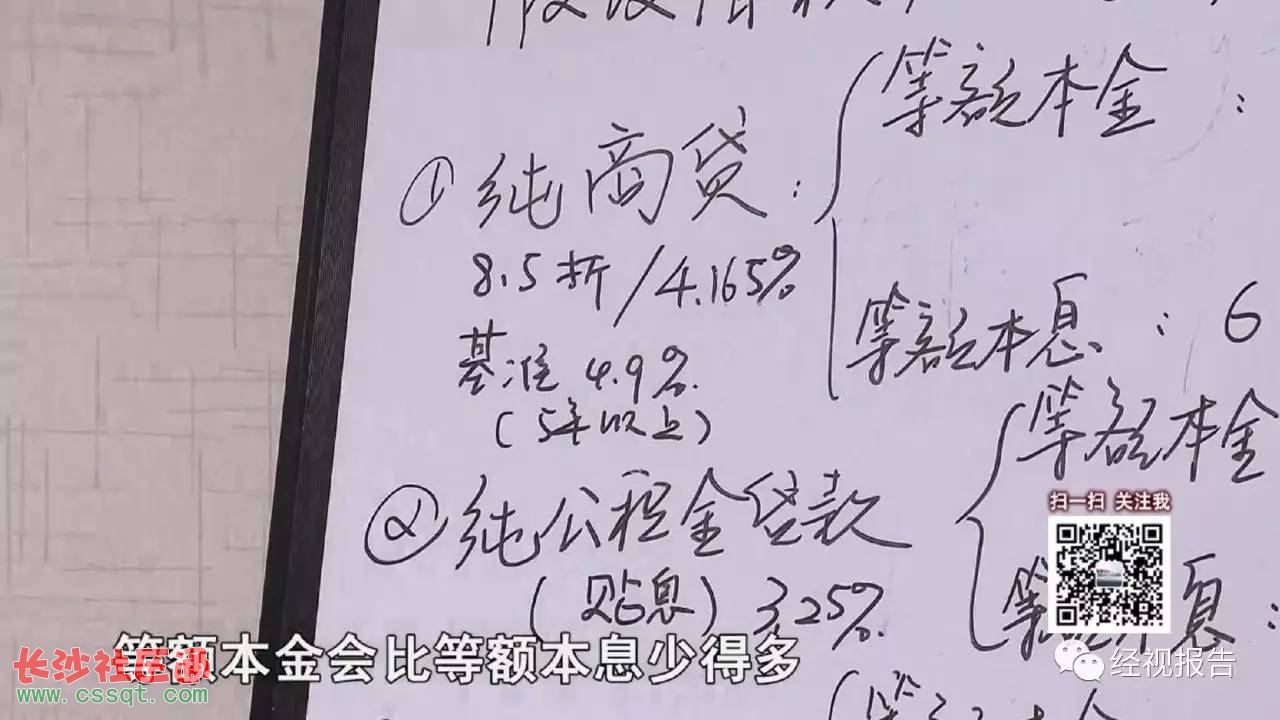 ①纯商贷:
等额本金:
8.5折/4.165%
基准4.9%.
(5年以上)
等额本息:6
②纯公积金贷款
(贴息)3.25%
等额本金
等额本息:
扫一扫 关注我
等额本金会比等额本息少得多
长沙社区通
www.cssqt.com
经视报告